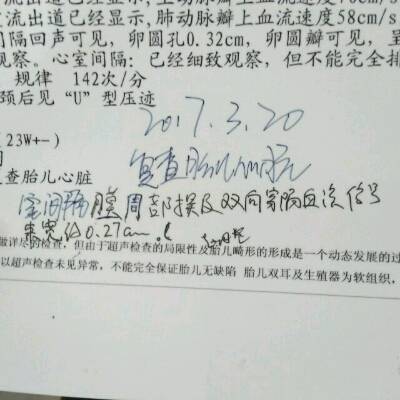 流出道已经显示,主动脉瓣上血流速度70cm/s
流出道已经显示,肺动脉瓣上血流速度58cm/s
间隔回声可见, 卵圆孔0.32cm, 卵圆瓣可见, 呈
观察。心室间隔: 已经细致观察, 但不能完全排
规律 142次/分
颈后见“U”型压迹
2017.3.20
(23W+-)
查胎儿心脏
复查胎儿心脏
室间隔膜周部探及双向穿隔血流信号
束宽约0.27cm
做详尽的检查, 但由于超声检查的局限性及胎儿畸形的形成是一个动态发展的过
以超声检查未见异常, 不能完全保证胎儿无缺陷 胎儿双耳及生殖器为软组织,